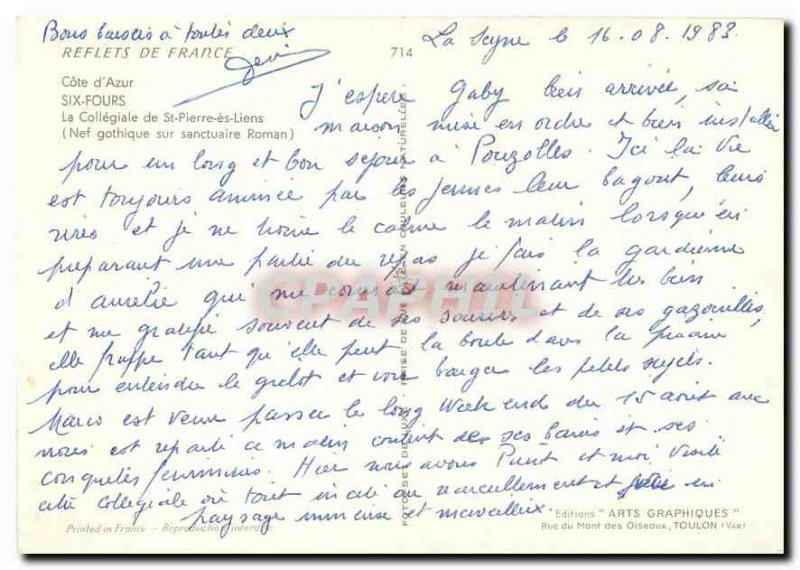 Bons baisers à toutes deux
REFLETS DE FRANCE
714
La Seyne le 16.08.1983
Côte d'Azur
SIX-FOURS
La Collégiale de St-Pierre-ès-Liens
(Nef gothique sur sanctuaire Roman)
J'espère Gaby bien arrivée, sa
maison mise en ordre et bien installée
pour un long et bon séjour à Pouzolles. Ici la vie
est toujours animée par les jeunes leur bagout, leurs
rires et je ne trouve le calme le matin lorsqu'en
préparant une partie du repas je fais la gardienne
d'aurélie qui me connait maintenant très bien
et me gratifie souvent de ses sourires et de ses gazouillis,
elle frappe tant qu'elle peut la boule dans la
pour entendre le grelot et voir bouger les petits sujets.
Marco est venu passer le long Week end du 15 août avec
nous est reparti ce matin content de ses bains et ses
conquêtes féminines. Hier nous avons et moi visité
cette collégiale où tout incite au recueillement et
paysage immense et merveilleux
GRAPHIL
PHOTO
EN COULEURS NATURELLES
Printed in France - Reproduction interdite
Editions "ARTS GRAPHIQUES"
Rue du Mont des Oiseaux, TOULON (VAR)